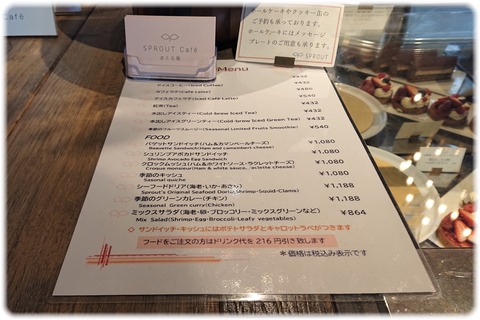 ホールケーキやクッキー缶の
ご予約も承っております。
ホールケーキにはメッセージ
プレートのご用意も承ります。
SPROUT
SPROUT Café
Menu
アイスコーヒー(Iced Coffee) ¥432
カフェラテ(Café Latte) ¥486
アイスカフェラテ(Iced Café Latte) ¥540
紅茶(Tea) ¥432
水出しアイスティー(Cold-brew Iced Tea) ¥432
水出しアイスグリーンティー(Cold-brew Iced Green Tea) ¥432
季節のフルーツスムージー(Seasonal Limited Fruits Smoothie) ¥540
FOOD
バゲットサンドイッチ(ハム&カマンベールチーズ) ¥1,080
Baguette Sandwich(Ham and camembert cheese)
シュリンプアボカドサンドイッチ ¥1,080
Shrimp Avocado Egg Sandwich
クロックムッシュ(ハム&ホワイトソース・ラクレットチーズ) ¥1,080
Croque monsieur(Ham & white sauce, raclette cheese)
季節のキッシュ ¥1,080
Seasonal quiche
シーフードドリア(海老・いか・あさり) ¥1,188
Sprout's Original Seafood Doria(Shrimp-Squid-Clams)
季節のグリーンカレー(チキン) ¥1,188
Seasonal Green curry(Chicken)
ミックスサラダ(海老・卵・ブロッコリー・ミックスグリーンなど) ¥864
Mix Salad(Shrimp-Egg-Broccoli-Leafy vegetables)
◇ サンドイッチ・キッシュにはポテトサラダとキャロットラペがつきます
フードをご注文の方はドリンク代を 216 円引き致します
*価格は税込み表示です